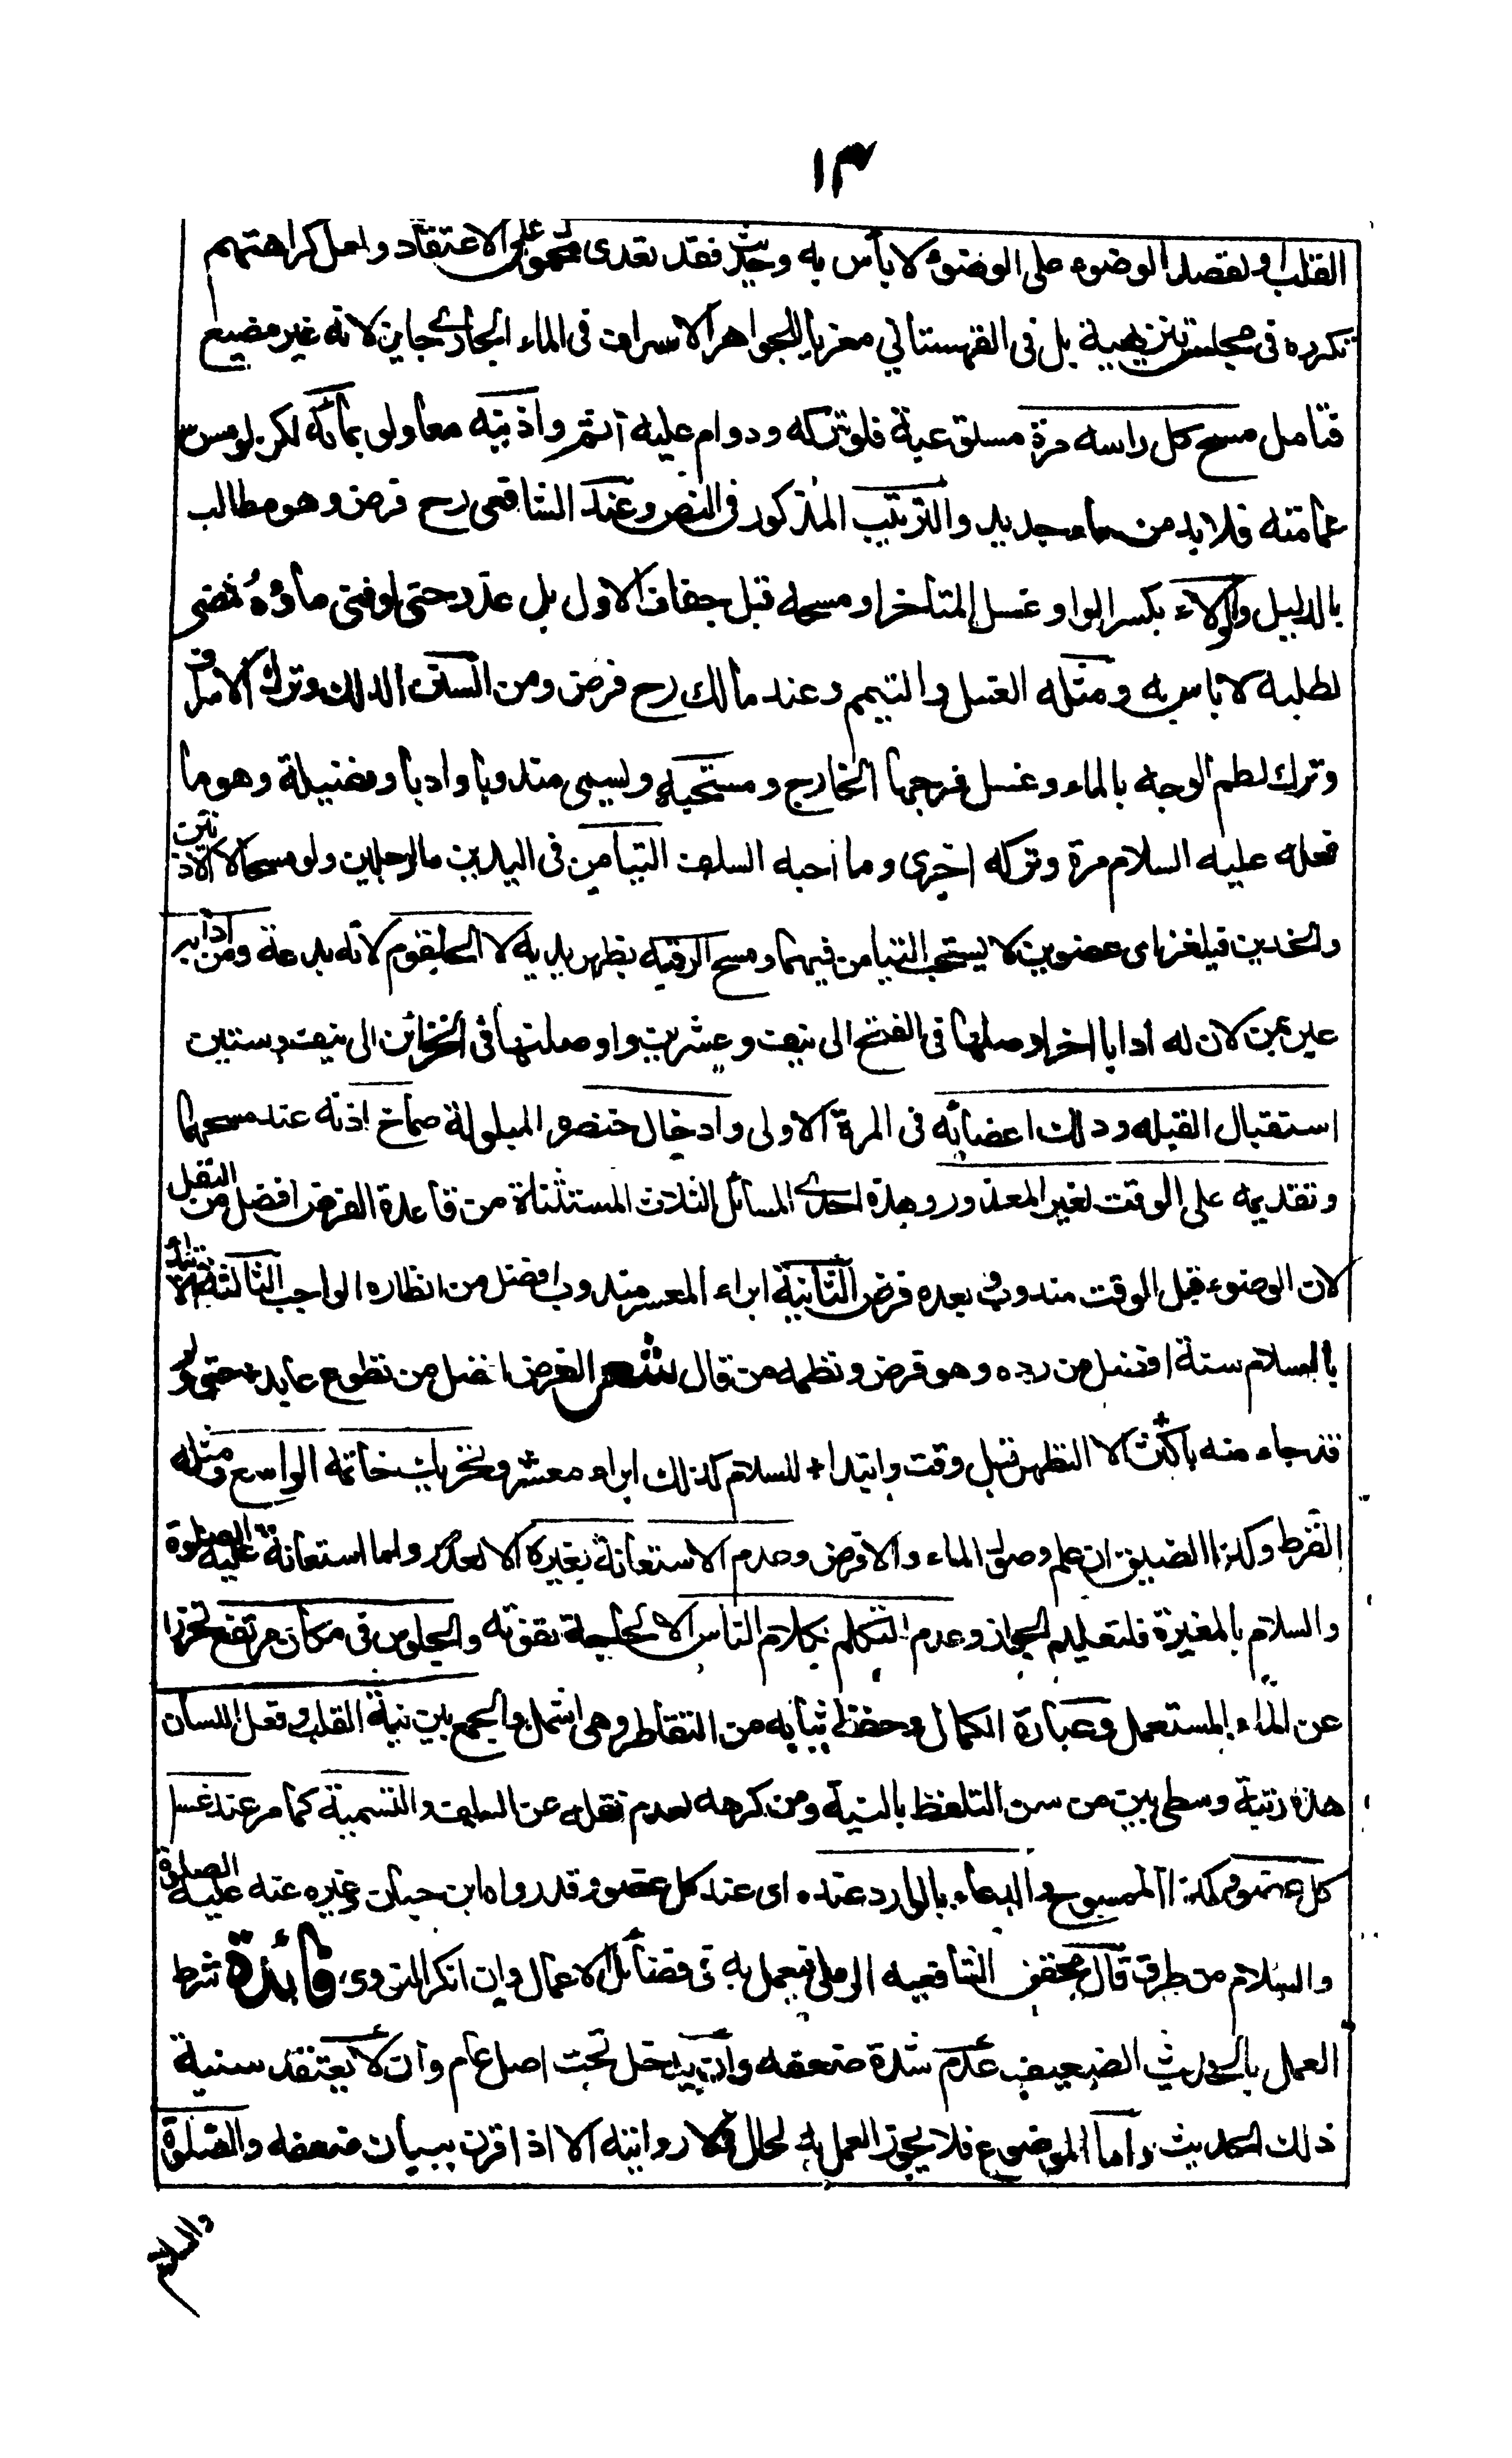 ١٣
القلب او لقصد الوضوء على الوضوء لا بأس به وحديث فقد تعدى محمول على الاعتقاد ولعل كراهتهم
تكرره فى مجلس تنزيهية بل فى القهستاني معزيا للجواهر الاسراف فى الماء الجارى جايز لانه غير مضيع
فتامل مسح كل راسه مرة مستوعبة فلو تركه ودوام عليه اثم واذنيه معا ولو بمائه لكن لو مس
عمامته فلا بد من ماء جديد والترتيب المذكور فى النص وعند الشافعى رح فرض وهو مطالب
بالدليل والولاء بكسر الواو غسل المتاخر او مسحه قبل جفاف الاول بل عذر حتى لو فنى ماؤه فمضى
لطلبه لا باس به ومثله الغسل والتيمم وعند مالك رح فرض ومن السنن الدلك وترك الاسراف
وترك لطم الوجه بالماء وغسل فرجها الخارج ومستحبه ويسمى مندوبا وادبا وفضيلة وهو ما
فعله عليه السلام مرة وتركه اخرى وما احبه السلف التيامن فى اليدين والرجلين ولو مسحا لا الاذنين
والخدين فيلغز اى عضوين لا يستحب التيامن فيهما ومسح الرقبة بظهر يديه لا الحلقوم لانه بدعة ومن ادابه
عبر بمن لان له ادابا اخر اوصلها فى الفتح الى نيف وعشرين واوصلتها فى الخزائن الى نيف وستين
استقبال القبله ودلك اعضائه فى المرة الاولى وادخال خنصره المبلولة صماخ اذنه عند مسحهما
وتقديمه على الوقت لغير المعذور وهذه احدى المسائل الثلاث المستثناة من قاعدة الفرض افضل من النفل
لان الوضوء قبل الوقت مندوب وبعده فرض الثانية ابراء المعسر مندوب افضل من انظاره الواجب الثالثة الابتداء
بالسلام سنة افضل من رده وهو فرض ونظمه من قال شعر الفرض افضل من تطوع عابد * حتى ولو
قد جاء منه باكثر * الا التطهر قبل وقت وابتداء * للسلام كذلك ابراء معسر وتحريك خاتمه الواسع ومثله
القرط وكذا الضيق ان علم وصول الماء والا فرض وعدم الاستعانة بغيره الا لعذر واما استعانة عليه الصلوة
والسلام بالمغيرة فلتعليم الجواز وعدم التكلم بكلام الناس الا لحاجة تفوته والجلوس فى مكان مرتفع تحرزا
عن الماء المستعمل وعبارة الكمال وحفظ ثيابه من التقاطر وهى اشمل والجمع بين نية القلب وفعل اللسان
هذه رتبة وسطى بين من سن التلفظ بالنية ومن كرهه لعدم نقله عن السلف والتسمية كما مر عند غسل
كل عضو وكذا الممسوح والدعاء بالوارد عنده اى عند كل عضو وقد رواه ابن حبان وغيره عنه عليه الصلوة
والسلام من طرق قال محقق الشافعيه الرملى فيعمل به فى فضائل الاعمال وان انكر النووى فائدة شرط
العمل بالحديث الضعيف عدم شدة ضعفه وان يدخل تحت اصل عام وان لا يعتقد سنية
ذلك الحديث واما الموضوع فلا يجوز العمل به لحال ولا روايته الا اذا قرن ببيان ضعفه والصلوة
والسلام